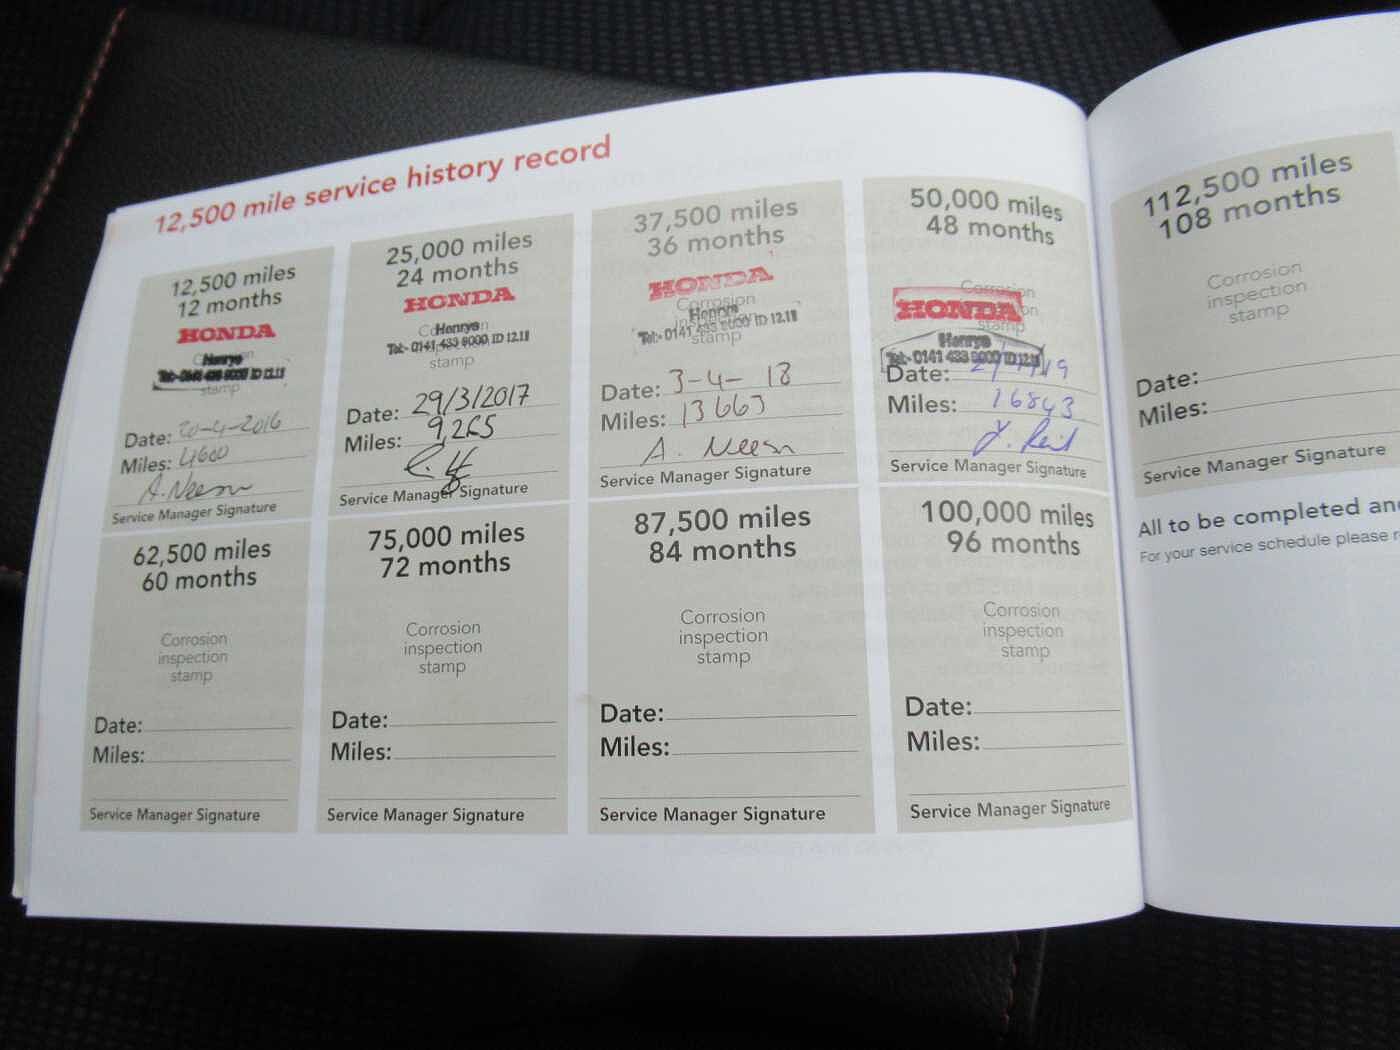 12,500 mile service history record
12,500 miles
12 months
HONDA
Henrys
Tel:- 0141 433 9000 ID 12.11
stamp
Date: 20-4-2016
Miles: 4600
A. Neeson
Service Manager Signature
25,000 miles
24 months
HONDA
Henrys
Tel:- 0141 433 9000 ID 12.11
stamp
Date: 29/3/2017
Miles: 9,265
Service Manager Signature
37,500 miles
36 months
HONDA
Corrosion
Henrys
Tel:- 0141 433 9000 ID 12.11
stamp
Date: 3-4-18
Miles: 13663
A. Neeson
Service Manager Signature
50,000 miles
48 months
Corrosion
HONDA
stamp
Henrys
Tel:- 0141 433 9000 ID 12.11
Date:
Miles: 16843
J. Reid
Service Manager Signature
62,500 miles
60 months
Corrosion
inspection
stamp
Date:
Miles:
Service Manager Signature
75,000 miles
72 months
Corrosion
inspection
stamp
Date:
Miles:
Service Manager Signature
87,500 miles
84 months
Corrosion
inspection
stamp
Date:
Miles:
Service Manager Signature
100,000 miles
96 months
Corrosion
inspection
stamp
Date:
Miles:
Service Manager Signature
112,500 miles
108 months
Corrosion
inspection
stamp
Date:
Miles:
Service Manager Signature
All to be completed
For your service schedule please